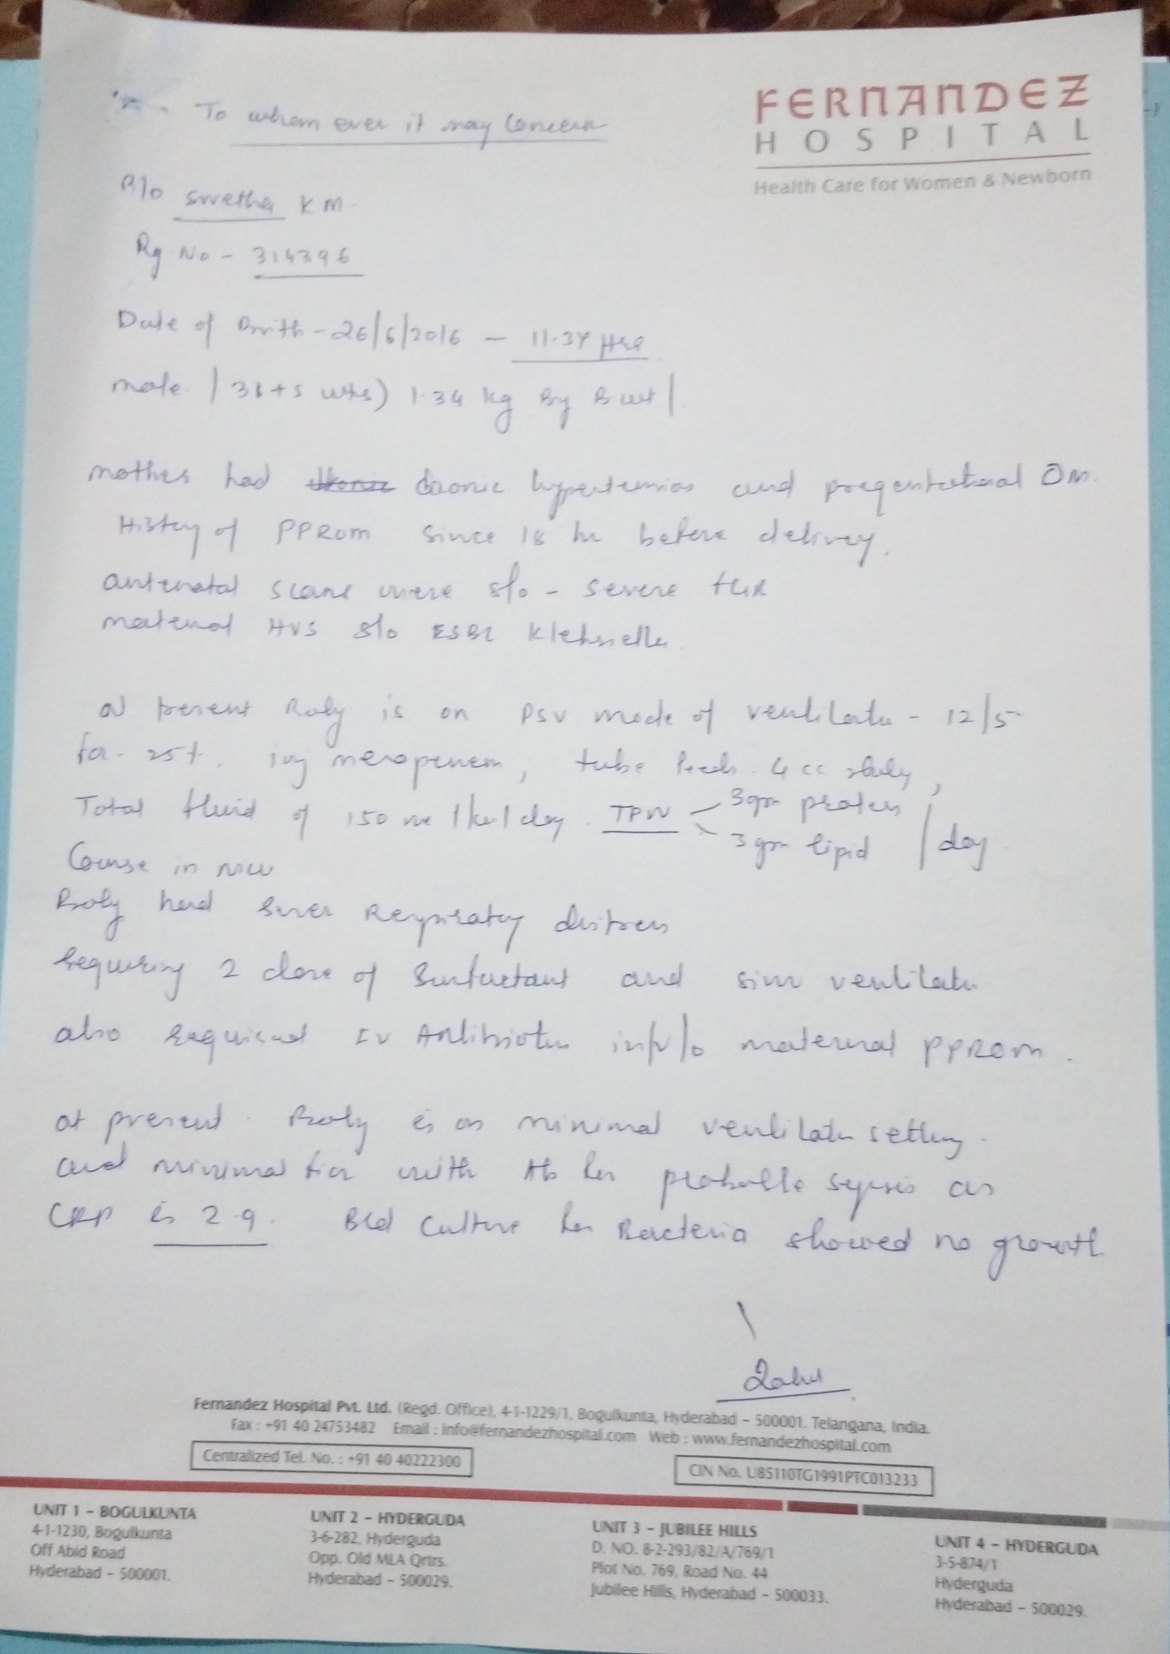 To whom ever it may concern
FERNANDEZ
HOSPITAL
Health Care for Women & Newborn
B/o Swetha K M.
Rg No - 314396
Date of Birth - 26/6/2016 - 11.34 Hrs
male / 31+5 wks) 1.34 kg By B wt /.
mother had chronic hypertension and pregestational DM.
History of PPROM since 18 hr before delivery.
antenatal scans were s/o - severe FGR
maternal HVS s/o ESBL Klebsiella.
at present Baby is on PSV mode of ventilator - 12/5
inj meropenem, tube feeds. 4 cc
Total fluid of 150 ml/kg/day. TPN - 3gm protein
3 gm lipid / day
Course in NICU
Baby had Sever Respiratory distress
requiring 2 dose of Surfactant and ventilator
also required IV Antibiotics i/v/o maternal PPROM.
at present. Baby is on minimal ventilator setting.
and minimal with for probable sepsis as
CRP is 2.9. Bld Culture for Bacteria showed no growth
Fernandez Hospital Pvt. Ltd. (Regd. Office), 4-1-1229/1, Bogulkunta, Hyderabad - 500001. Telangana, India.
Fax : +91 40 24753482 Email : info@fernandezhospital.com Web : www.fernandezhospital.com
Centralized Tel. No. : +91 40 40222300
CIN No. U85110TG1991PTC013233
UNIT 1 - BOGULKUNTA
4-1-1230, Bogulkunta
Off Abid Road
Hyderabad - 500001.
UNIT 2 - HYDERGUDA
3-6-282, Hyderguda
Opp. Old MLA Qrtrs.
Hyderabad - 500029.
UNIT 3 - JUBILEE HILLS
D. NO. 8-2-293/82/A/769/1
Plot No. 769, Road No. 44
Jubilee Hills, Hyderabad - 500033.
UNIT 4 - HYDERGUDA
3-5-874/1
Hyderguda
Hyderabad - 500029.